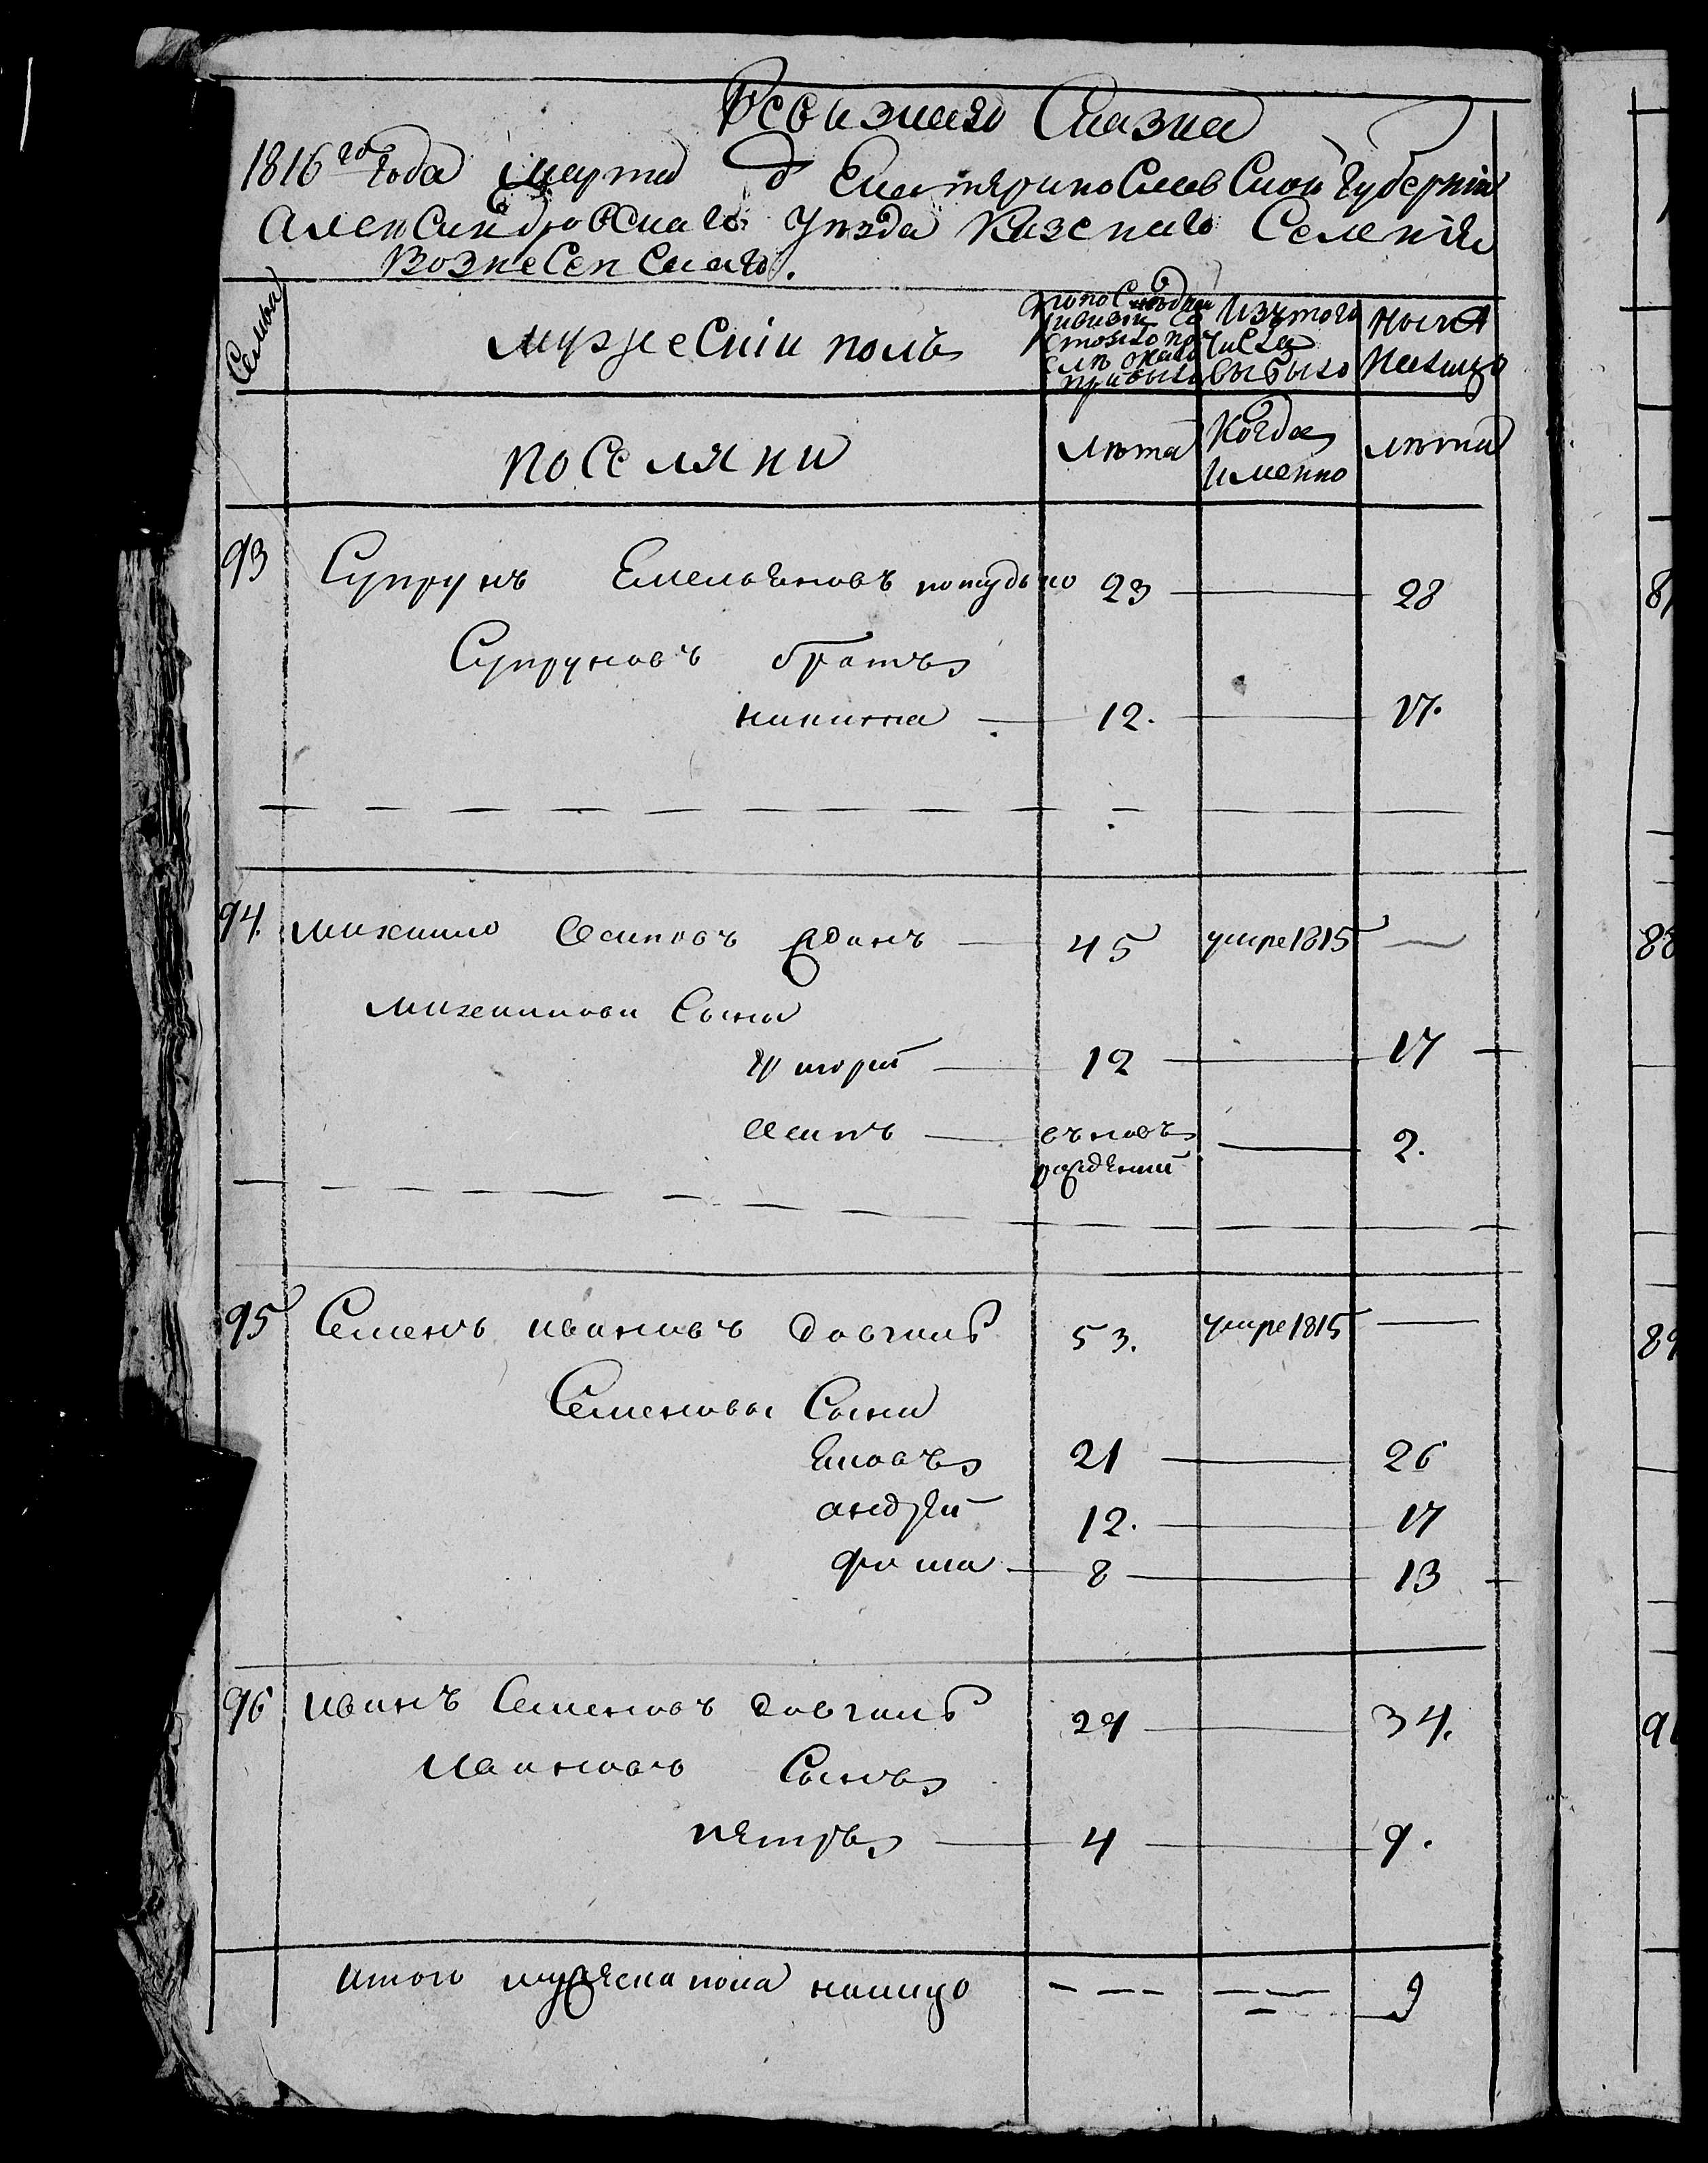 Ревизкаяо Сказка
1816го года марта д Екатеринославскои Губернiи
Александровскаго Уезда Казенаго Селенiя
Вознесенскаго.
Семьи
Мужескiи полъ
По последней ревизiи состояло и после оной прибыло
Изъ того числа выбыло
Ныне налицо
Поселяни
лета
Когда именно
лета
93 Супрунъ Емельяновъ 23 28
Супруновъ братъ
никита 12. 17.
94. михаило Осиповъ 45 умре 1815
михаилови Сыны
григорiй 12 17
Осипъ въновь рожденый 2.
95 Семенъ ивановъ довгаль 53. умре 1815
Семеновы Сыни
Яковъ 21 26
андрей 12. 17
фома 8 13
96 иванъ Семеновъ довгаль 29 34.
Ивановъ Сынъ
петръ 4 9.
итого мужеска пола налицо 9
88
89